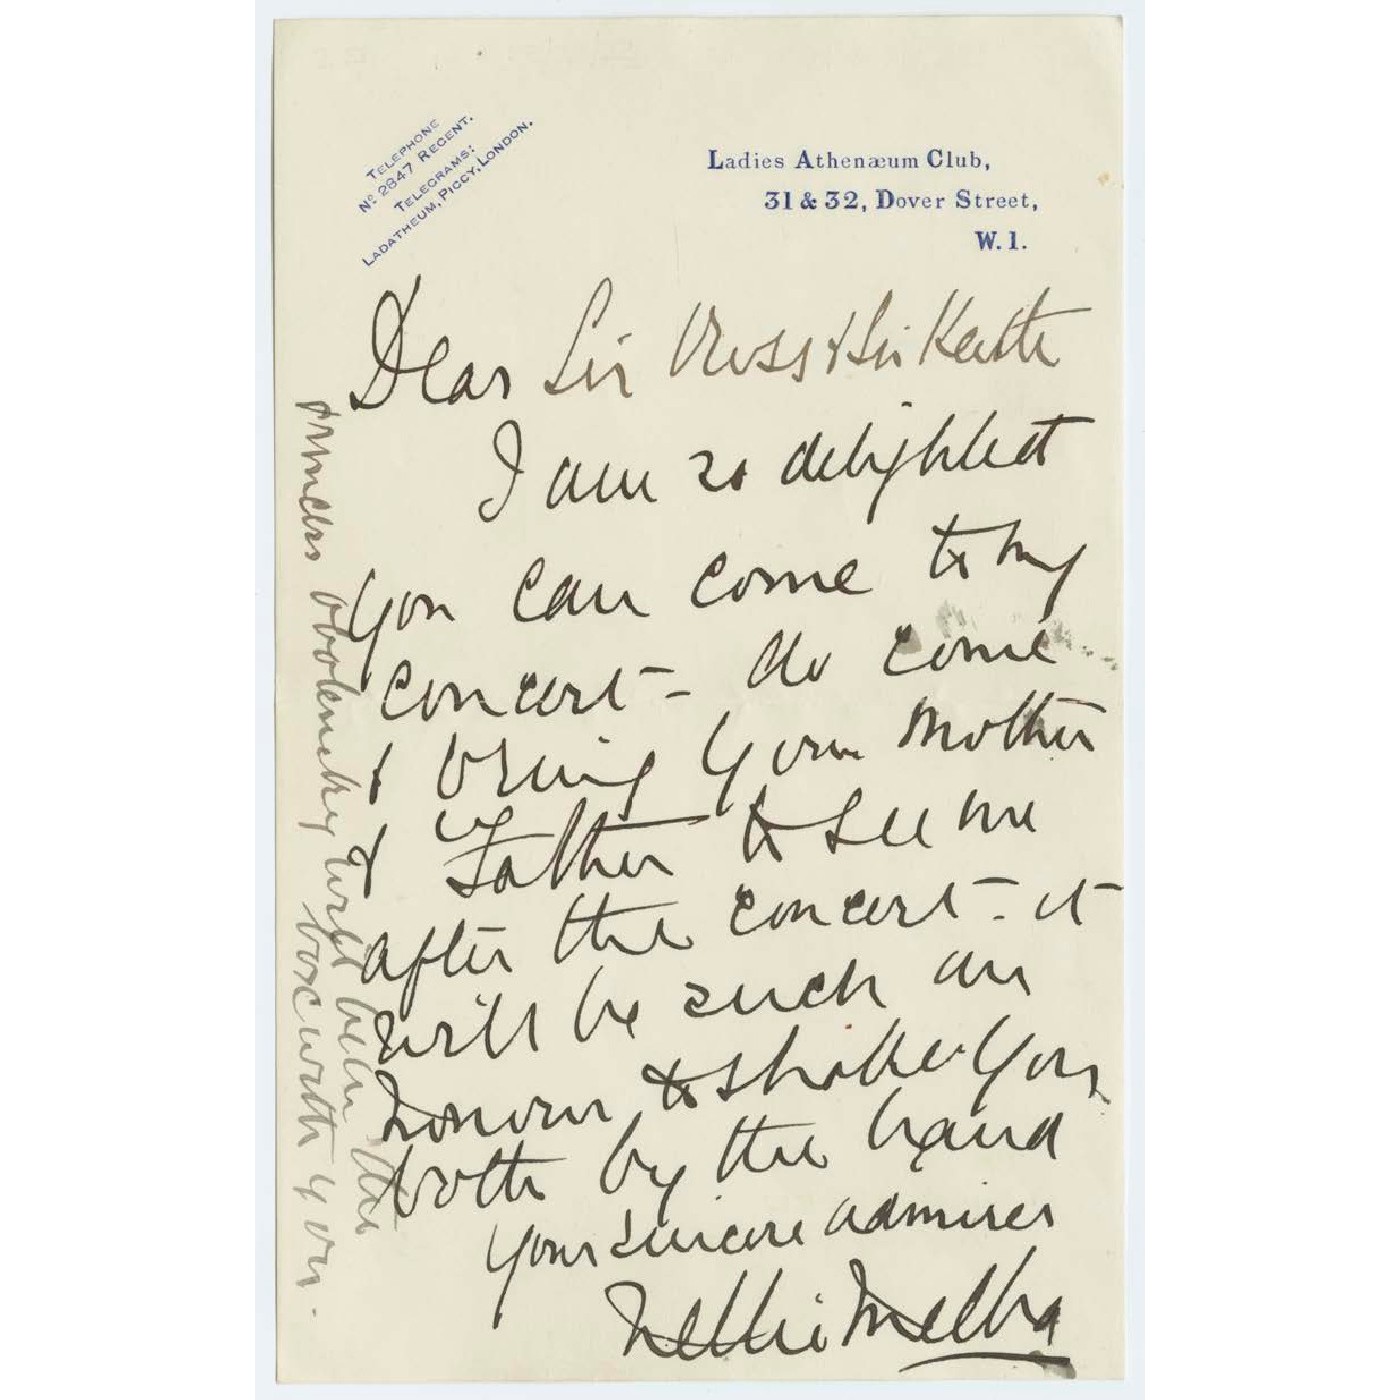 TELEPHONE
No 2847 REGENT.
TELEGRAMS:
LADATHEUM, PICCY, LONDON.
Ladies Athenæum Club,
31 & 32, Dover Street,
W. 1.
Dear Sir Ross & Sir Keith
I am so delighted
you can come to my
concert - do come
& bring your mother
& Father to see me
after the concert - it
will be such an
honour to shake you
both by the hand
your sincere admirer
Nellie Melba
Princess will be in the
box with you.